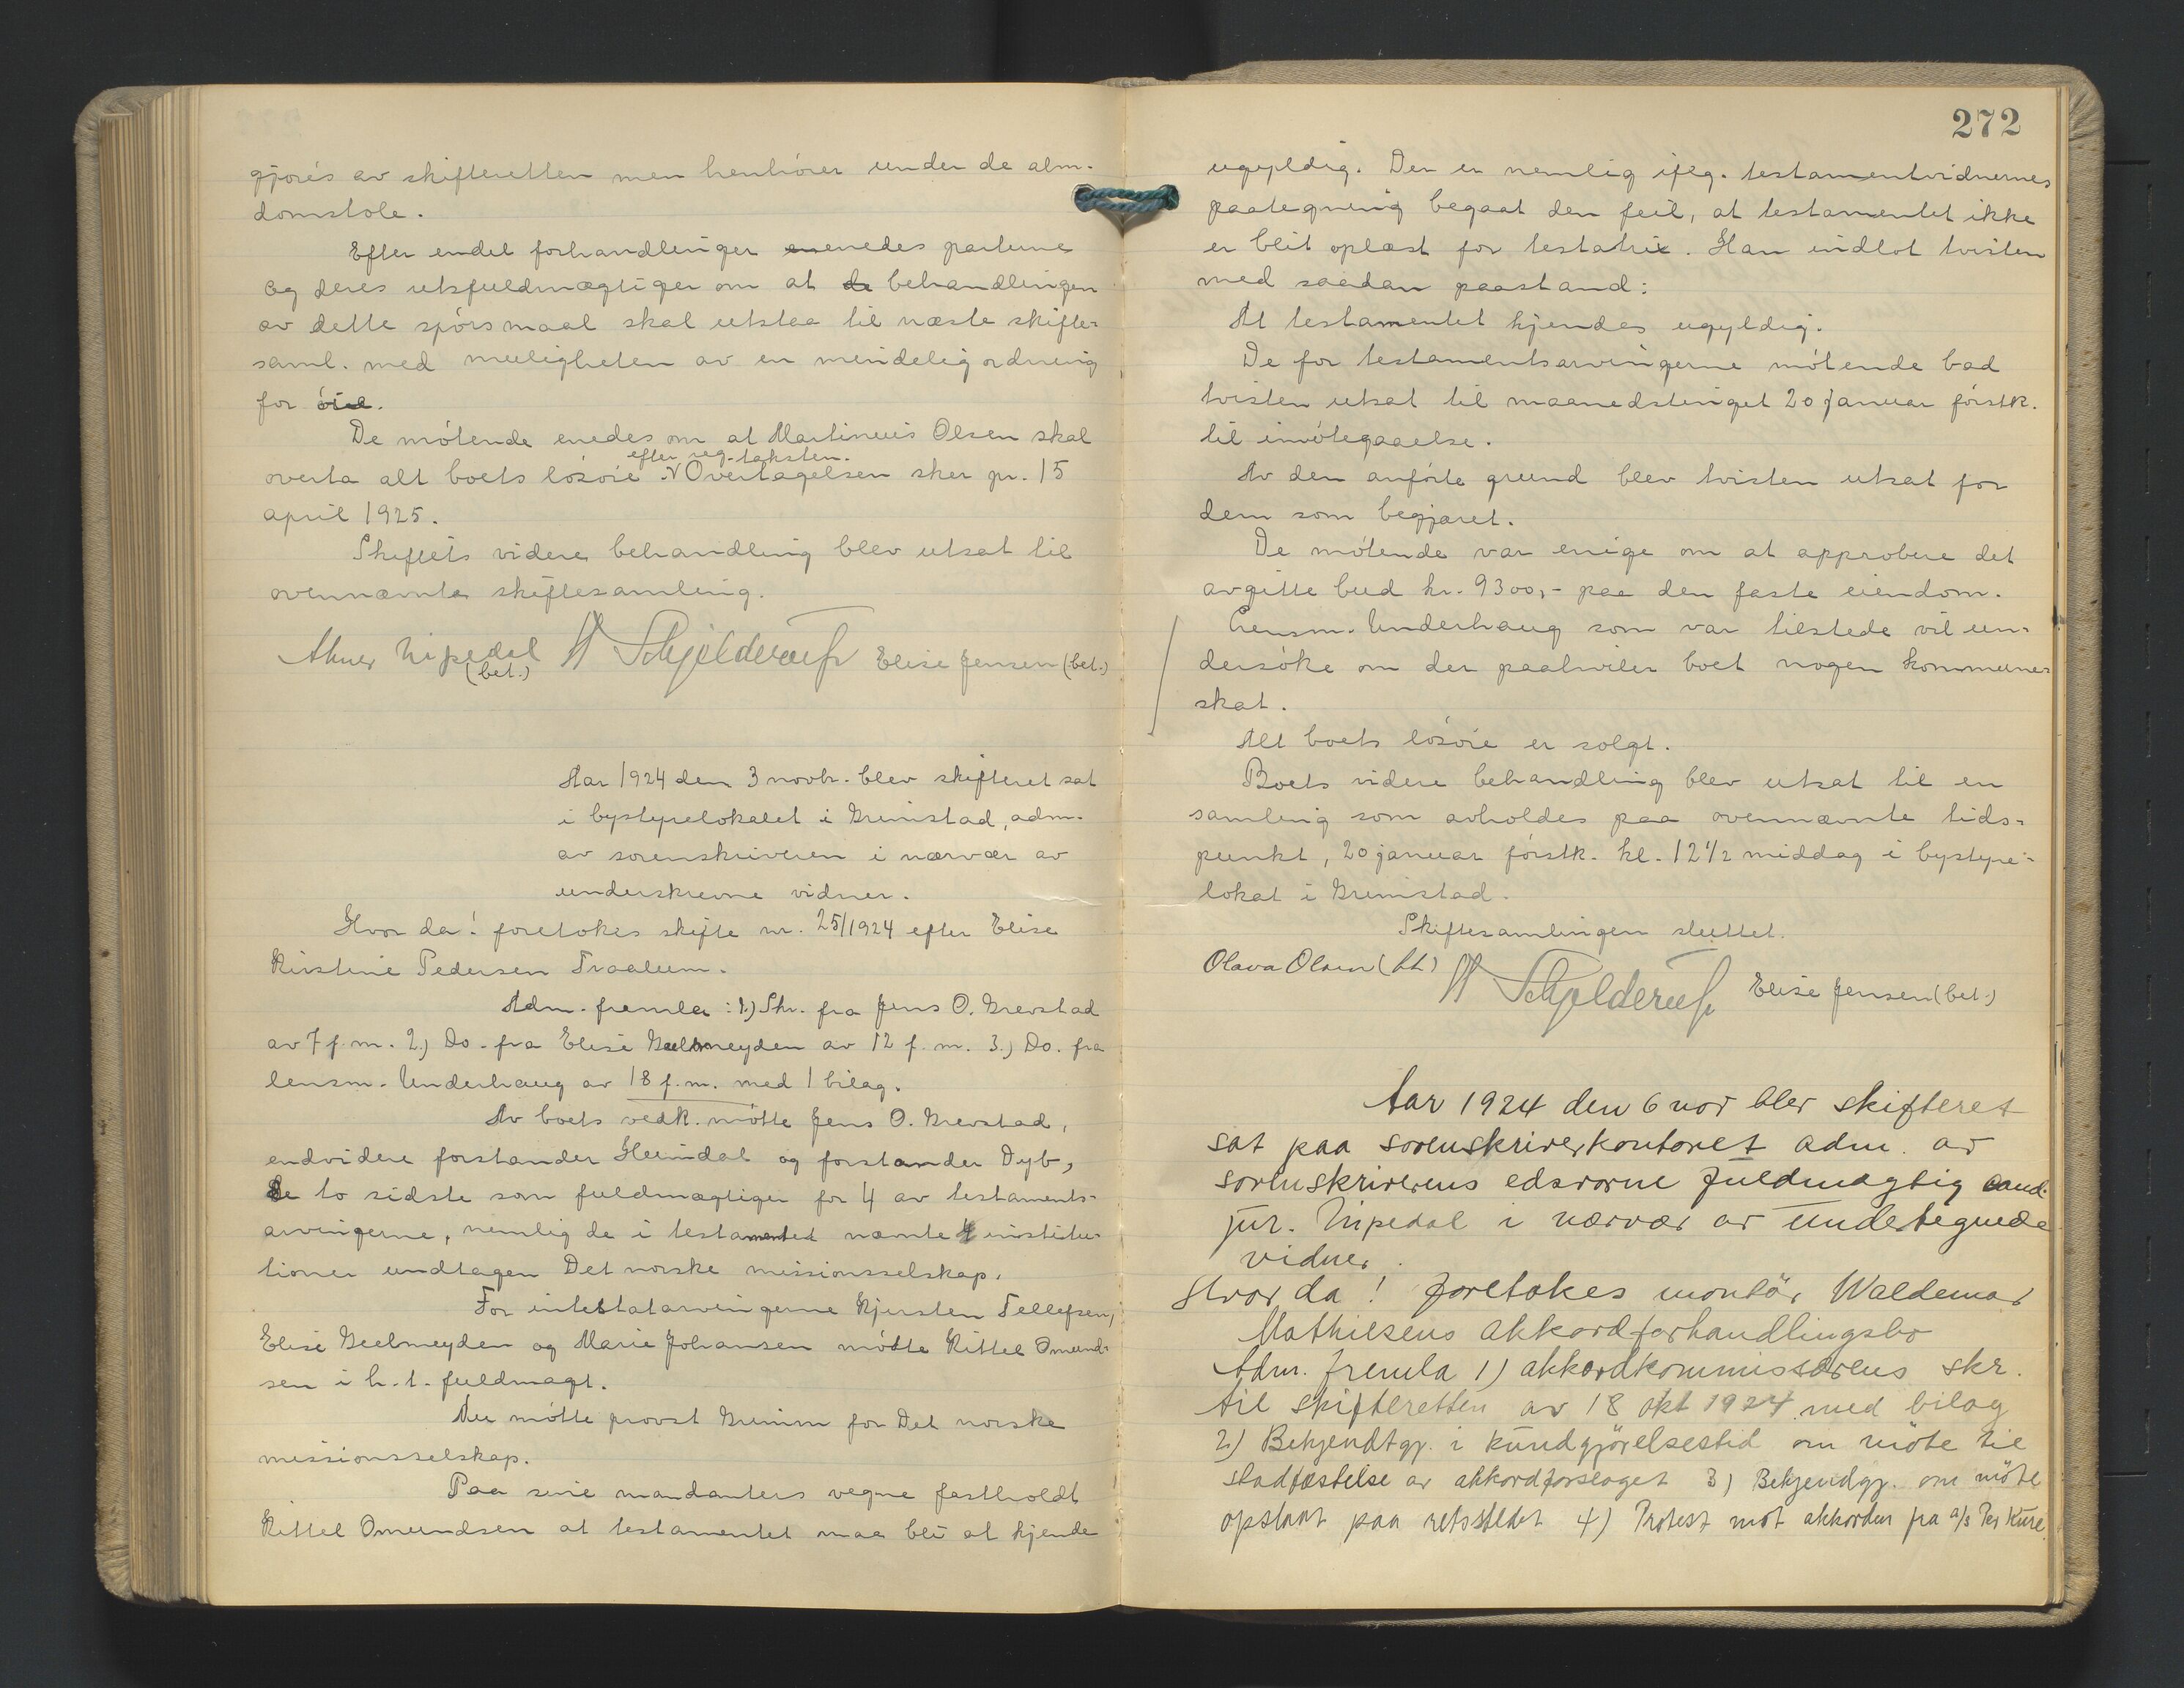 gjøres av skifteretten men henhører under de alm.
domstole.
Efter endel forhandlinger enedes parterne
og deres utsfuldmægtiger om at behandlingen
av dette spörsmaal skal utstaa til næste skifte-
saml. med muligheten av en mindelig ordning
for öie.
De mötende enedes om at Martinius Olsen skal
efter reg. taksten.
overta alt boets lösöie. Overtagelsen sker pr. 15
april 1925.
Skiftets videre behandling blev utsat til
ovennævnte skiftesamling.
Abner Nipedal (bet.) Schjelderup Elise Jensen (bet.)
Aar 1924 den 3 novbr. blev skifteret sat
i bystyrelokalet i Grimstad, adm.
av sorenskriveren i nærvær av
underskrevne vidner.
Hvor da! foretokes skifte nr. 25/1924 efter Elise
Kirstine Pedersen Traalum.
Adm. fremla: 1.) Skr. fra Jens O. Grevstad
av 7 f.m. 2.) Do. fra Elise Geelmeyden av 12 f.m. 3.) Do. fra
lensm. Underhaug av 18 f.m. med 1 bilag.
Av boets vedk. mötte Jens O. Grevstad,
endvidere forstander Heimdal og forstander Dyb,
de to sidste som fuldmægtiger for 4 av testaments-
arvingerne, nemlig de i testamentet nævnte institu-
tioner undtagen Det norske missionsselskap.
For intestatarvingerne Kjersten Tellefsen,
Elise Geelmeyden og Marie Johansen mötte Kittel Omund-
sen i h.t. fuldmagt.
Nu mötte provst Grimm for Det norske
missionsselskap.
Paa sine mandanters vegne fastholdt
Kittel Omundsen at testamentet maa bli at kjende
272
ugyldig. Der er nemlig ifölg. testamentvidnernes
paategning begaat den feil, at testamentet ikke
er blit oplæst for testatrix. Han indlot tvisten
med saadan paastand:
At testamentet kjendes ugyldig.
De for testamentsarvingerne mötende bad
tvisten utsat til maanedstinget 20 januar förstk.
til imötegaaelse.
Av den anförte grund blev tvisten utsat for
dem som begjæret.
De mötende var enige om at approbere det
avgitte bud kr. 9300,- paa den faste eiendom.
Lensm. Underhaug som var tilstede vil un-
dersöke om der paahviler boet nogen kommune-
skat.
Alt boets lösöie er solgt.
Boets videre behandling blev utsat til en
samling som avholdes paa ovennævnte tids-
punkt, 20 januar förstk. kl. 12 1/2 middag i bystyre-
lokat i Grimstad.
Skiftesamlingen sluttet.
Olava Olsen (bt.) Schjelderup Elise Jensen (bet.)
Aar 1924 den 6 nov blev skifteret
sat paa sorenskriverkontoret adm. av
sorenskriverens edsvorne fuldmægtig cand.
jur. Nipedal i nærvær av undertegnede
vidner.
Hvor da! foretokes montör Waldemar
Mathisens akkordforhandlingsbo
Adm. fremla 1) akkordkommissærens skr.
til skifteretten av 18 okt 1924 med bilag
2) Bekjendtgj. i kundgjörelsestid om möte til
stadfæstelse av akkordforslaget 3) Bekjendgj. om möte
opslaat paa retsstedet 4) Protest mot akkorden fra a/s Per Kure.